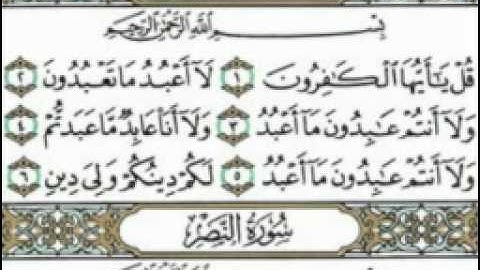 بِسْمِ ٱللَّهِ ٱلرَّحْمَٰنِ ٱلرَّحِيمِ
قُلْ يَٰٓأَيُّهَا ٱلْكَٰفِرُونَ ١ لَآ أَعْبُدُ مَا تَعْبُدُونَ ٢
وَلَآ أَنتُمْ عَٰبِدُونَ مَآ أَعْبُدُ ٣ وَلَآ أَنَا۠ عَابِدٌ مَّا عَبَدتُّمْ ٤
وَلَآ أَنتُمْ عَٰبِدُونَ مَآ أَعْبُدُ ٥ لَكُمْ دِينُكُمْ وَلِىَ دِينِ ٦
سُورَةُ النَّصْرِ